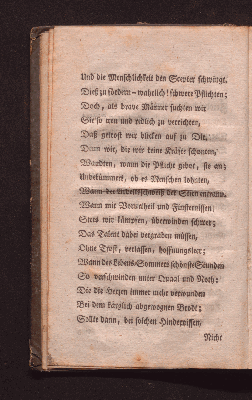 Und die Menschlichkeit den Scepter schwingt.
Dieß zu fördern – wahrlich! schwere Pflichten;
Doch, als brave Männer suchten wir
Sie so treu und redlich zu verrichten,
Daß getrost wir blicken auf zu Dir.
Denn wir, die wir keine Kräfte schonten,
Wandten, wann die Pflicht gebot, sie an;
Unbekümmert, ob es Menschen lohnten,
Wann der Arbeitsschweiß der Stirn entrann.
Wann mit Vorurtheil und Finsternissen
Stets wir kämpfen, überwinden schwer;
Das Talent dabei vergraben müssen,
Ohne Trost, verlassen, hoffnungsleer;
Wann des Lebens-Sommers schönste Stunden
So verschwinden unter Quaal und Noth:
Die die Herzen immer mehr verwunden
Bei dem kärglich abgewognen Brode;
Sollte dann, bei solchen Hindernissen,
Nicht